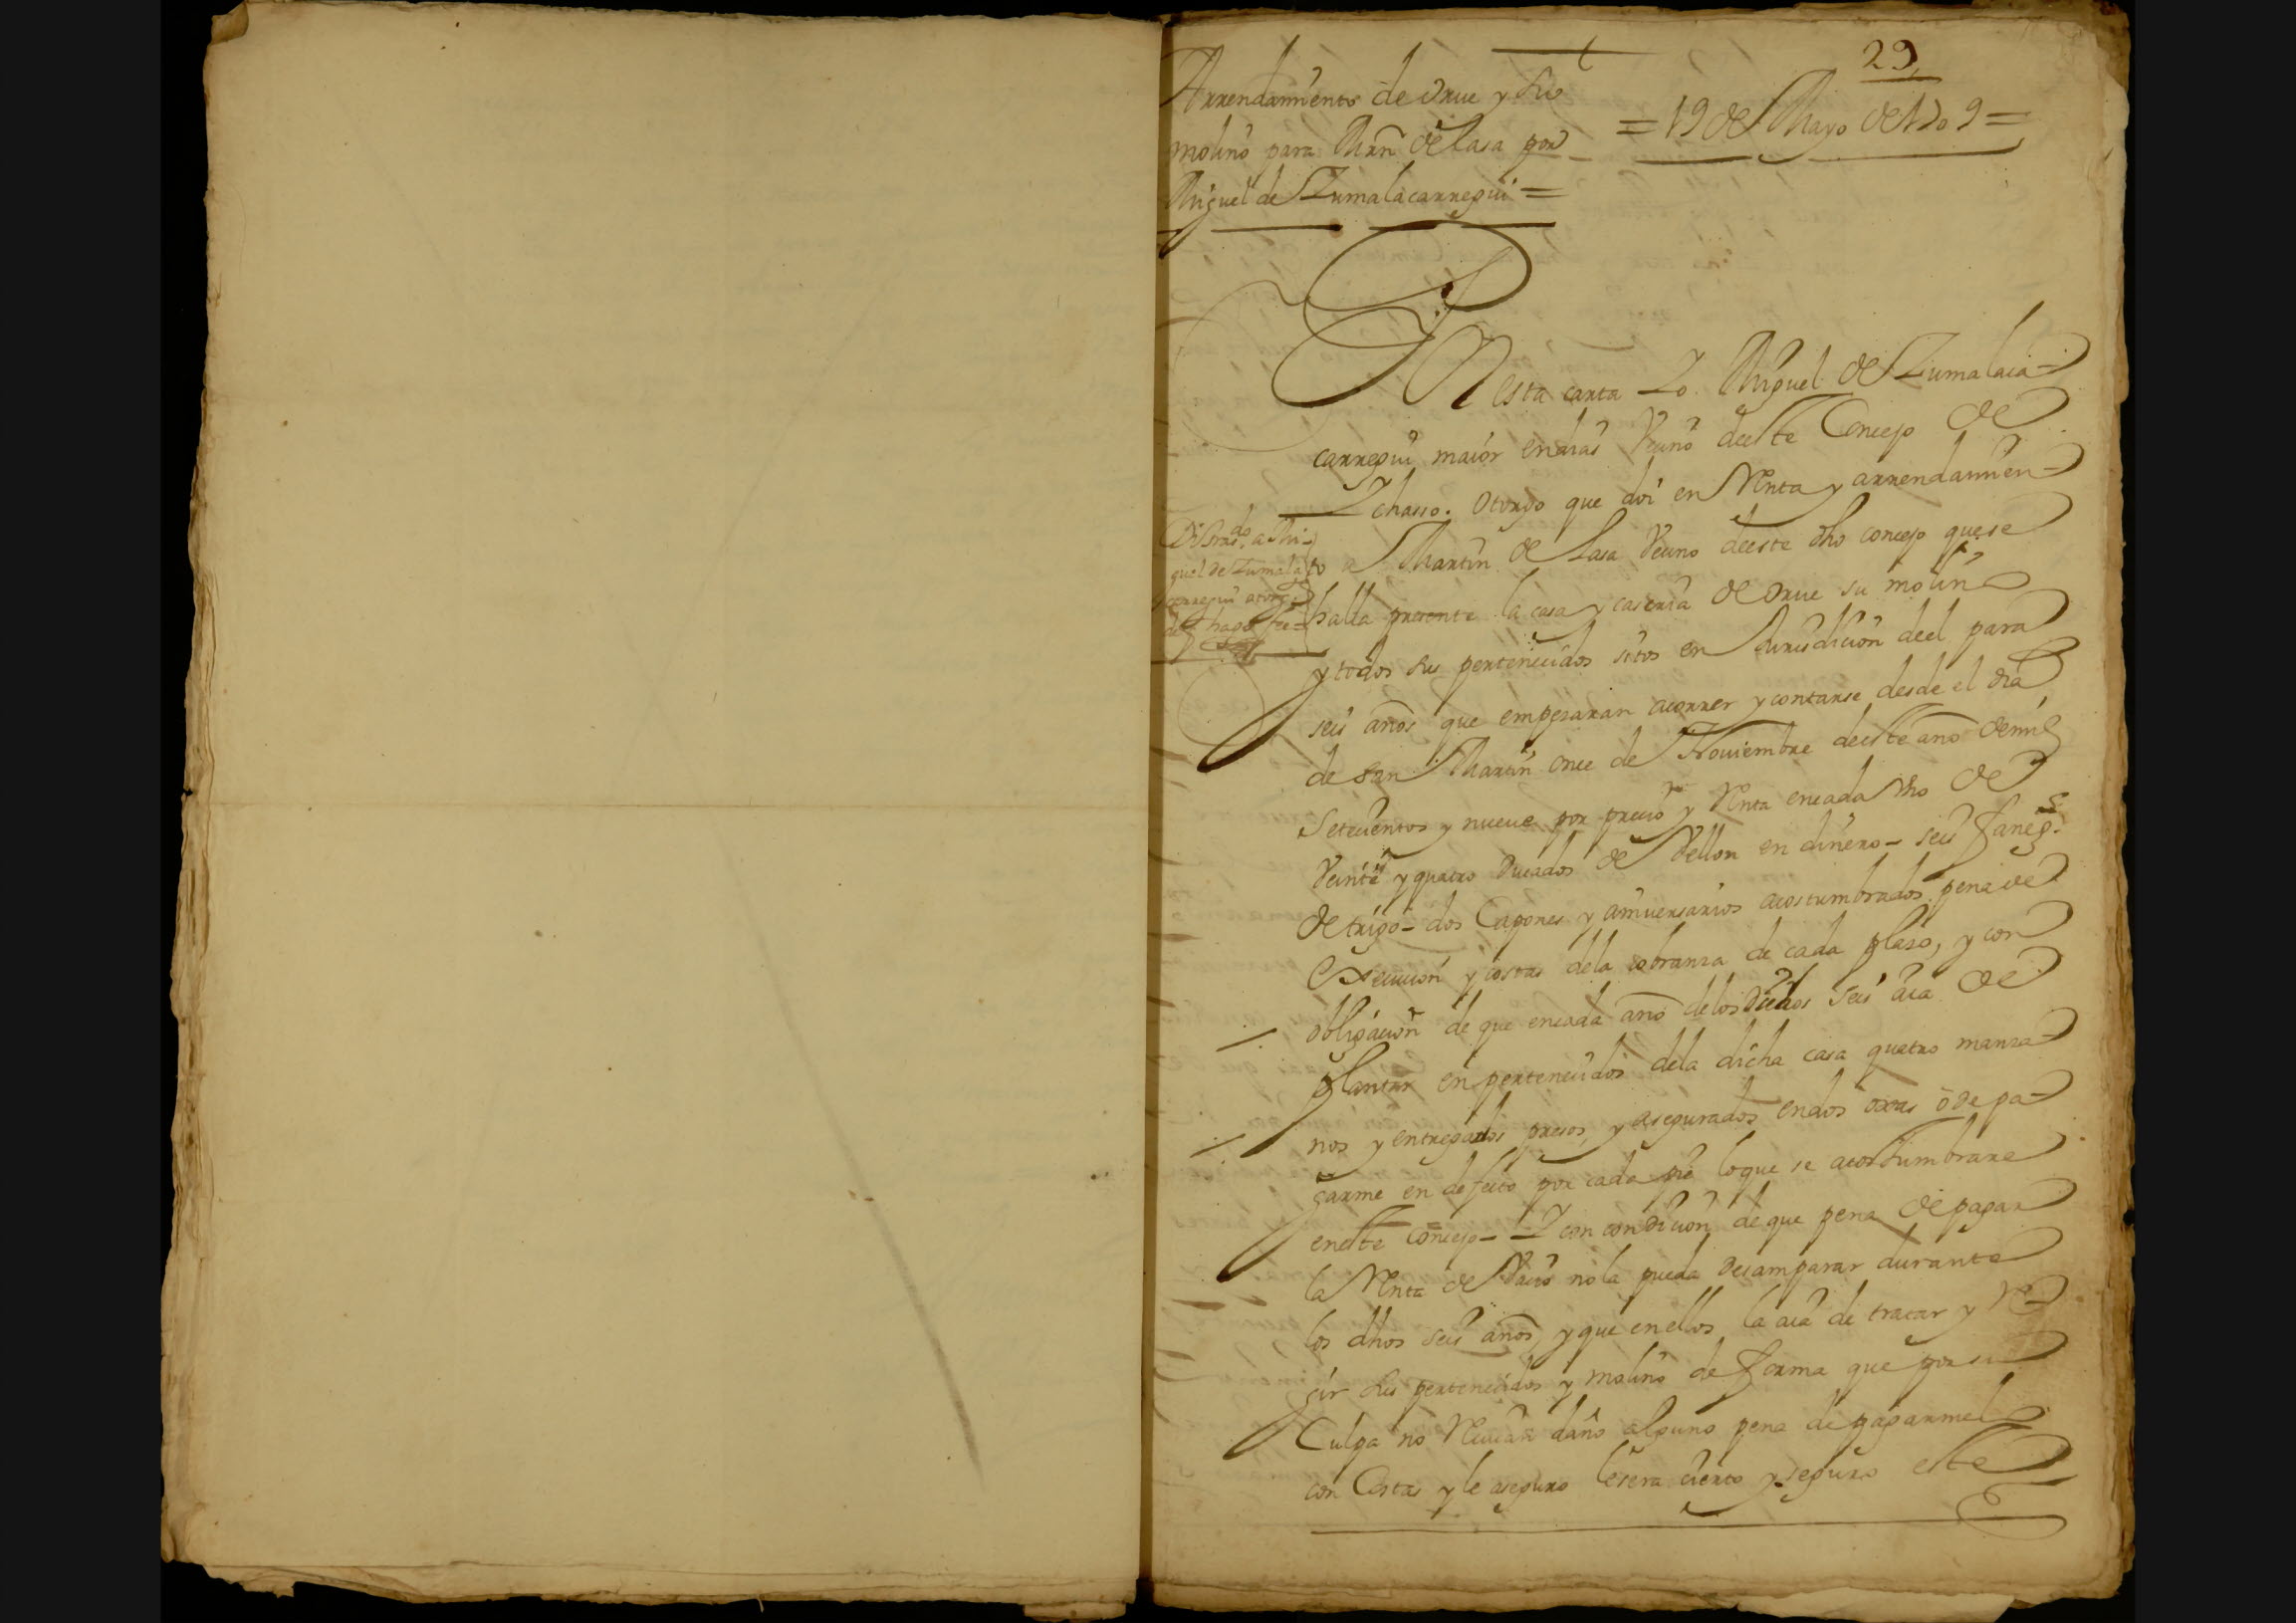 29
Arrendamiento de Orue y su
molino para Mrn de Lasa por
Miguel de Zumalacarregui =
= 19 de Mayo de 1709 =
En esta carta Yo Miguel de Zumalaca-
carregui maior en dias Vecino deeste Concejo de
Ychasso. Otorgo que doi en Renta y arrendamien-
to a Martin de Lasa Vecino deeste dho concejo que se
halla presente la casa y caseria de Orue su molino
y todos sus pertenecidos sitos en Jurisdicion deel para
seis años que empesaran acorrer y contarse desde el dia
de san Martin once de Noviembre deeste año de mil
Setecientos y nueve por precio y Renta encada Año de
Veinte y quatro Ducados de Vellon en dinero - seis faneg.s
de trigo - dos Capones y aniversarios acostumbrados pena de
Execucion y costas dela cobranza de cada plaso, y con
obligacion de que encada año de los Dichos seis aia de
plantar en pertenecidos dela dicha casa quatro manza-
nos y entregarlos presos y asegurados endos oxas ò de pa-
garme en defecto por cada pie loque se acostumbrare
eneste Concejo - Y con condicion de que pena de pagar
la Renta de Vacio no la pueda desamparar durante
los dhos seis años, y que enellos la aia de tratar y Re-
gir sus pertenecidos y molino de forma que por su
Culpa no Reciban daño alguno pena de pagarmelo
con Costas y le aseguro lesera cierto y seguro este
Di tras.do a Mi-
guel de Zumala
carregui otorg.te